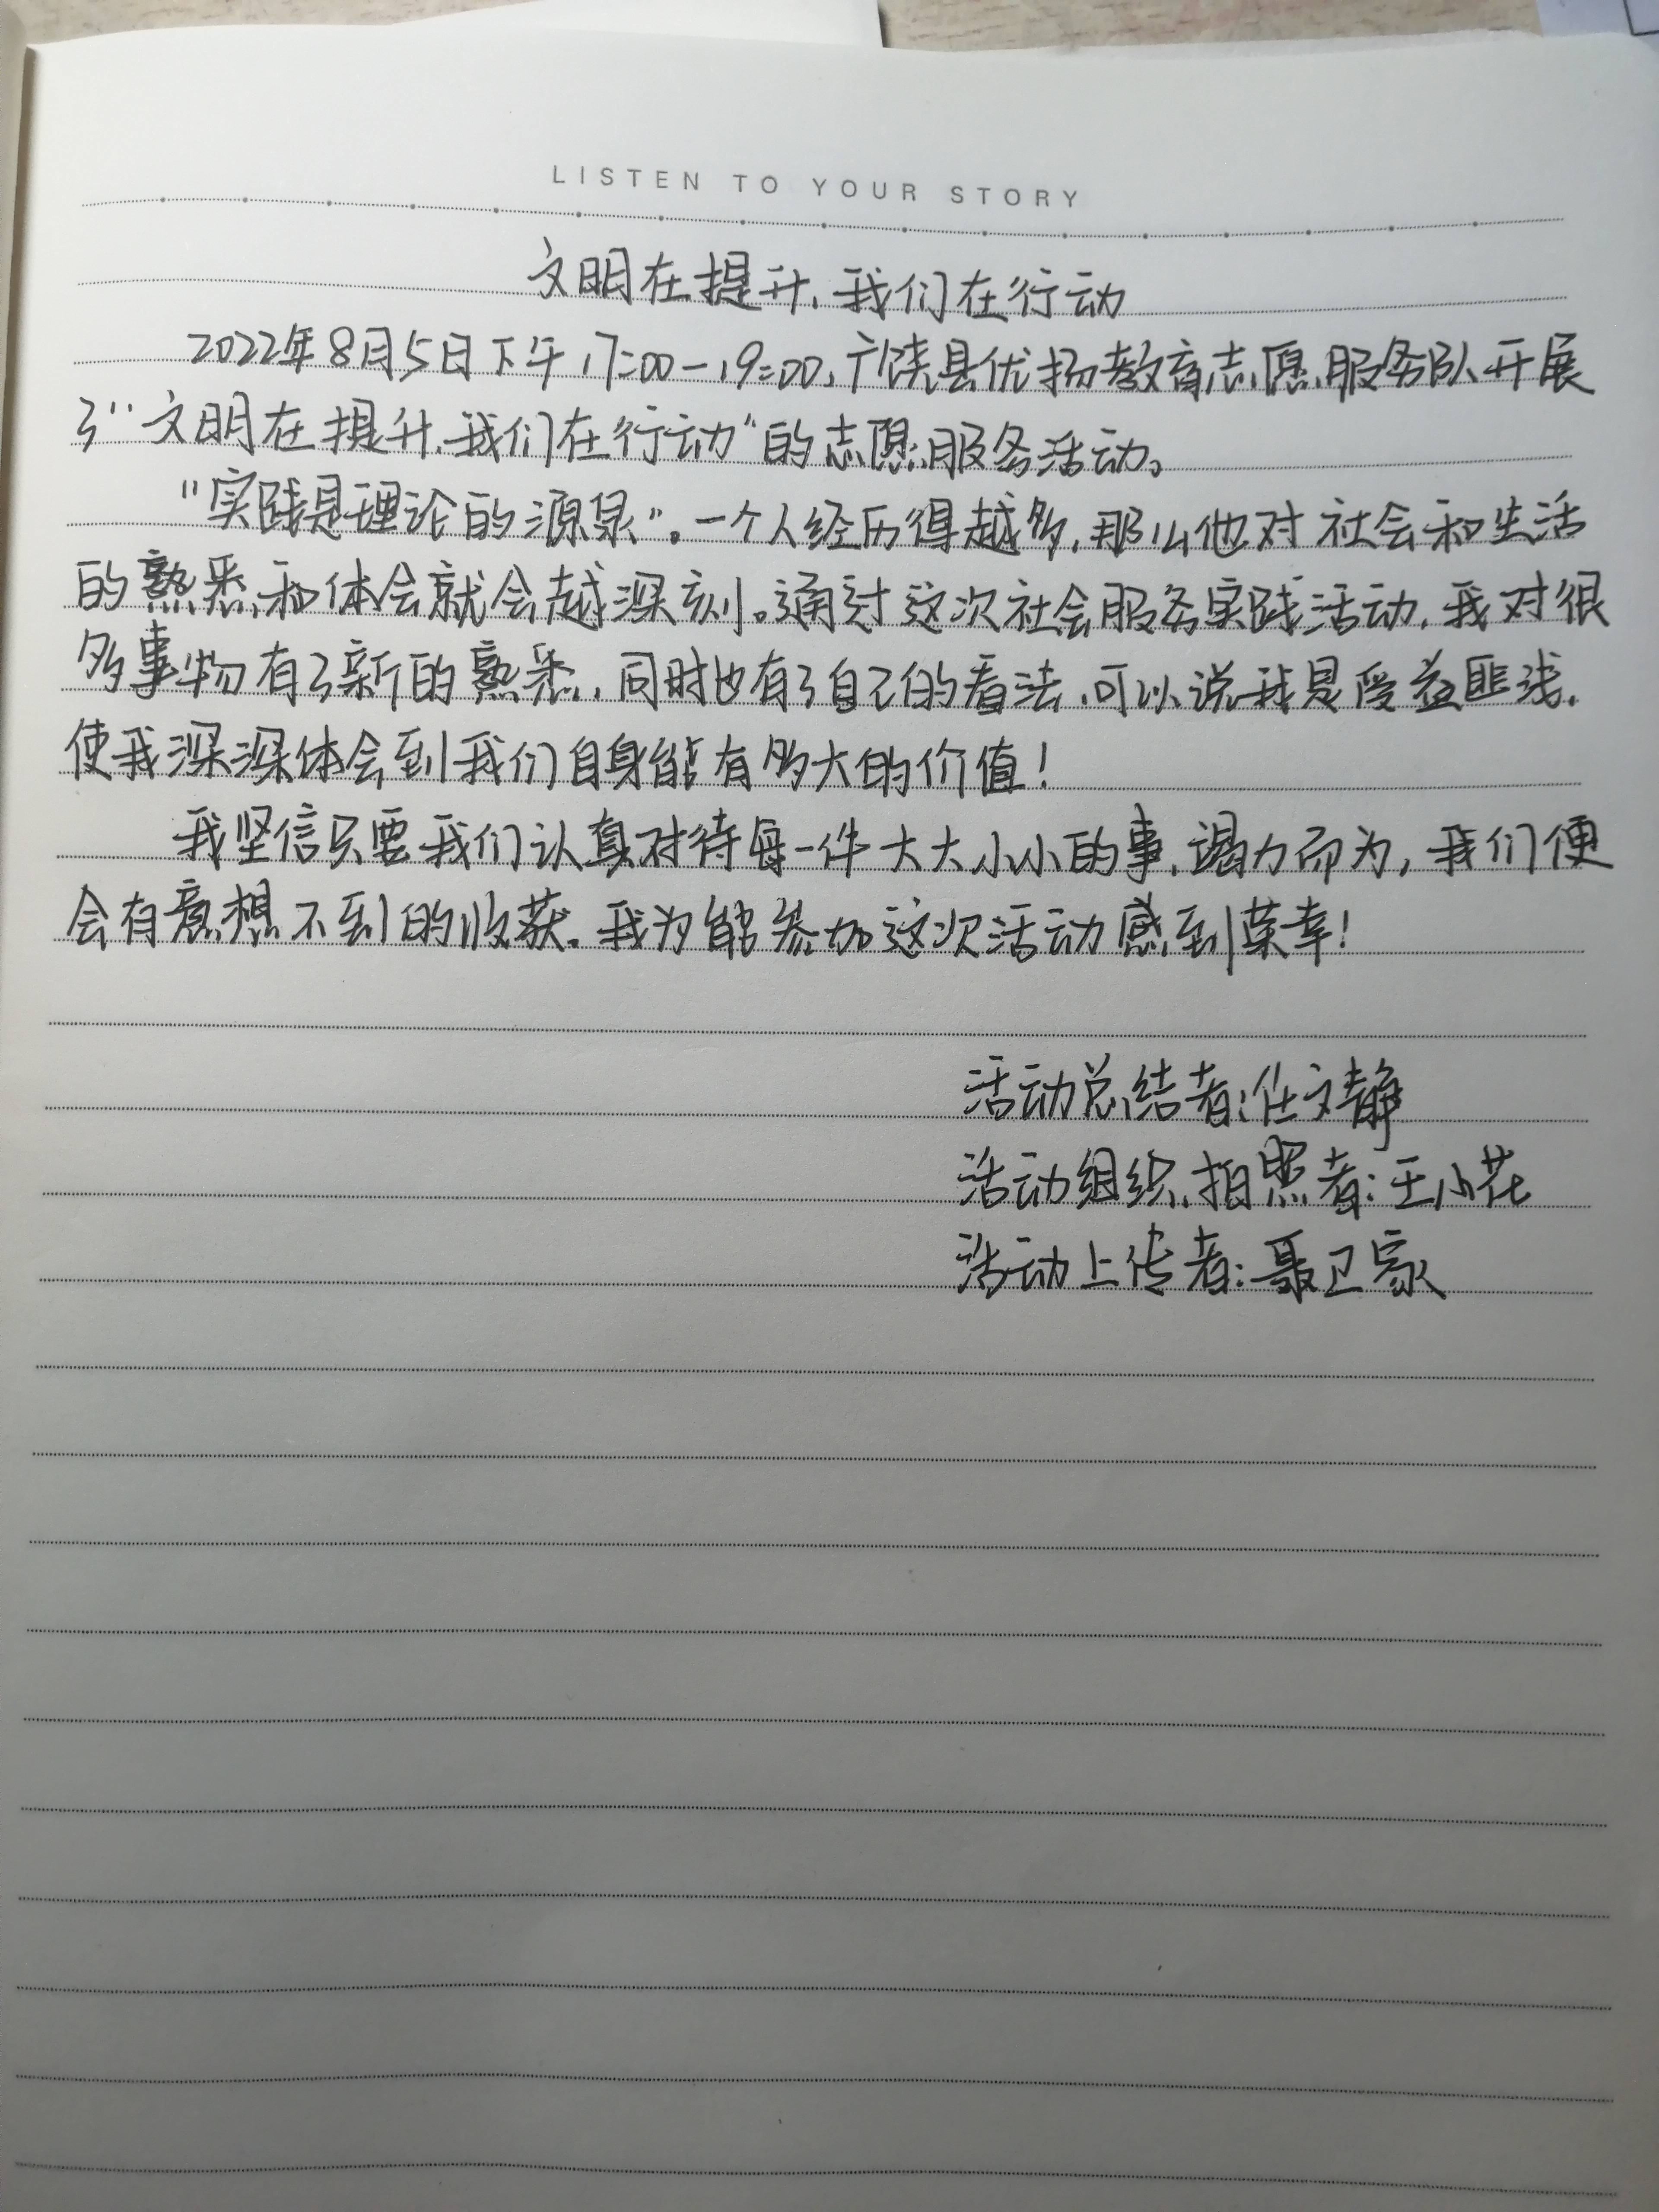 LISTEN TO YOUR STORY
文明在提升,我们在行动
2022年8月5日下午17:00-19:00,广饶县优扬教育志愿服务队开展
了“文明在提升,我们在行动“的志愿服务活动。
“实践是理论的源泉”。一个人经历得越多,那么他对社会和生活
的熟悉和体会就会越深刻。通过这次社会服务实践活动,我对很
多事物有了新的熟悉,同时也有了自己的看法,可以说我是受益匪浅.
使我深深体会到我们自身能有多大的价值!
我坚信只要我们认真对待每一件大大小小的事,竭力而为,我们便
会有意想不到的收获。我为能参加这次活动感到荣幸!
活动总结者:任文静
活动组织,拍照者:王小花
活动上传者:聂卫家